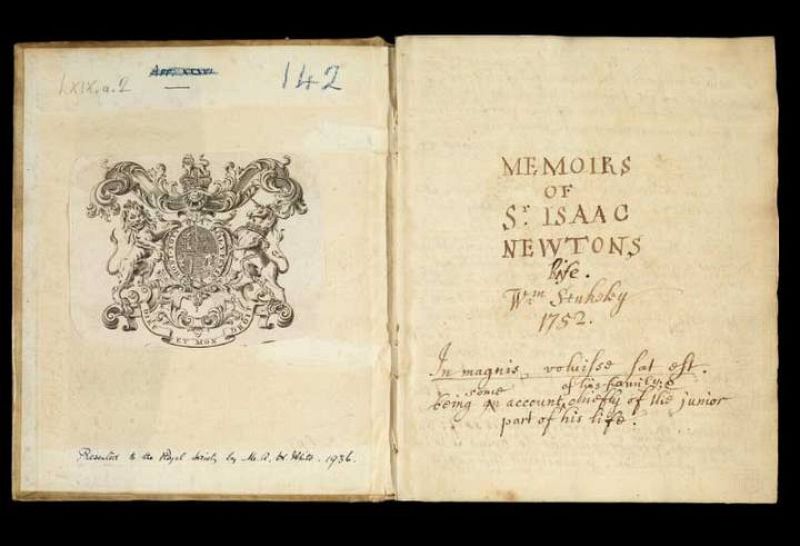 LXIX.a.2
142
HONI SOIT
DIEU ET MON DROIT
Presented to the Royal Society by Mr. A. H. White. 1936.
MEMOIRS
OF
Sr. ISAAC
NEWTONS
life.
Wm Stukeley
1752.
In magnis, voluisse sat est.
some of his family; &
being an account, chiefly of the junior
part of his life.